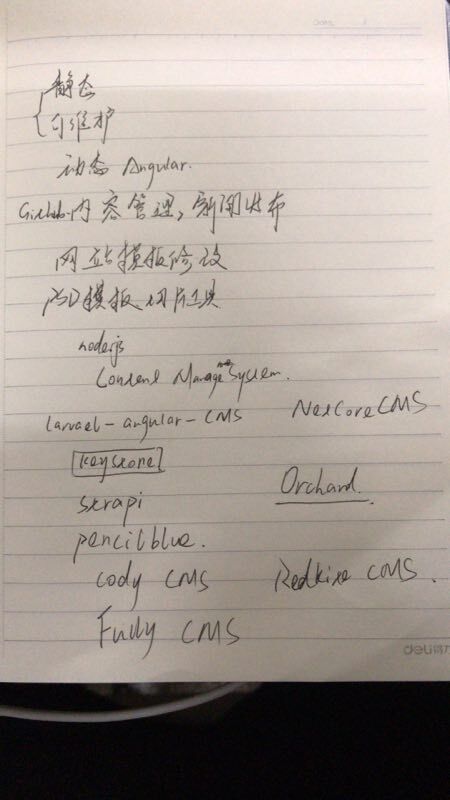 静态
可维护
动态 Angular.
GitHub 内容管理,新闻发布
网站模板修改
PSD模板切片工具
nodejs
Content Management System.
larvael-angular-CMS NetCoreCMS
keystone
strapi Orchard
pencilblue.
Cody CMS Redkite CMS.
Fully CMS
deli得力